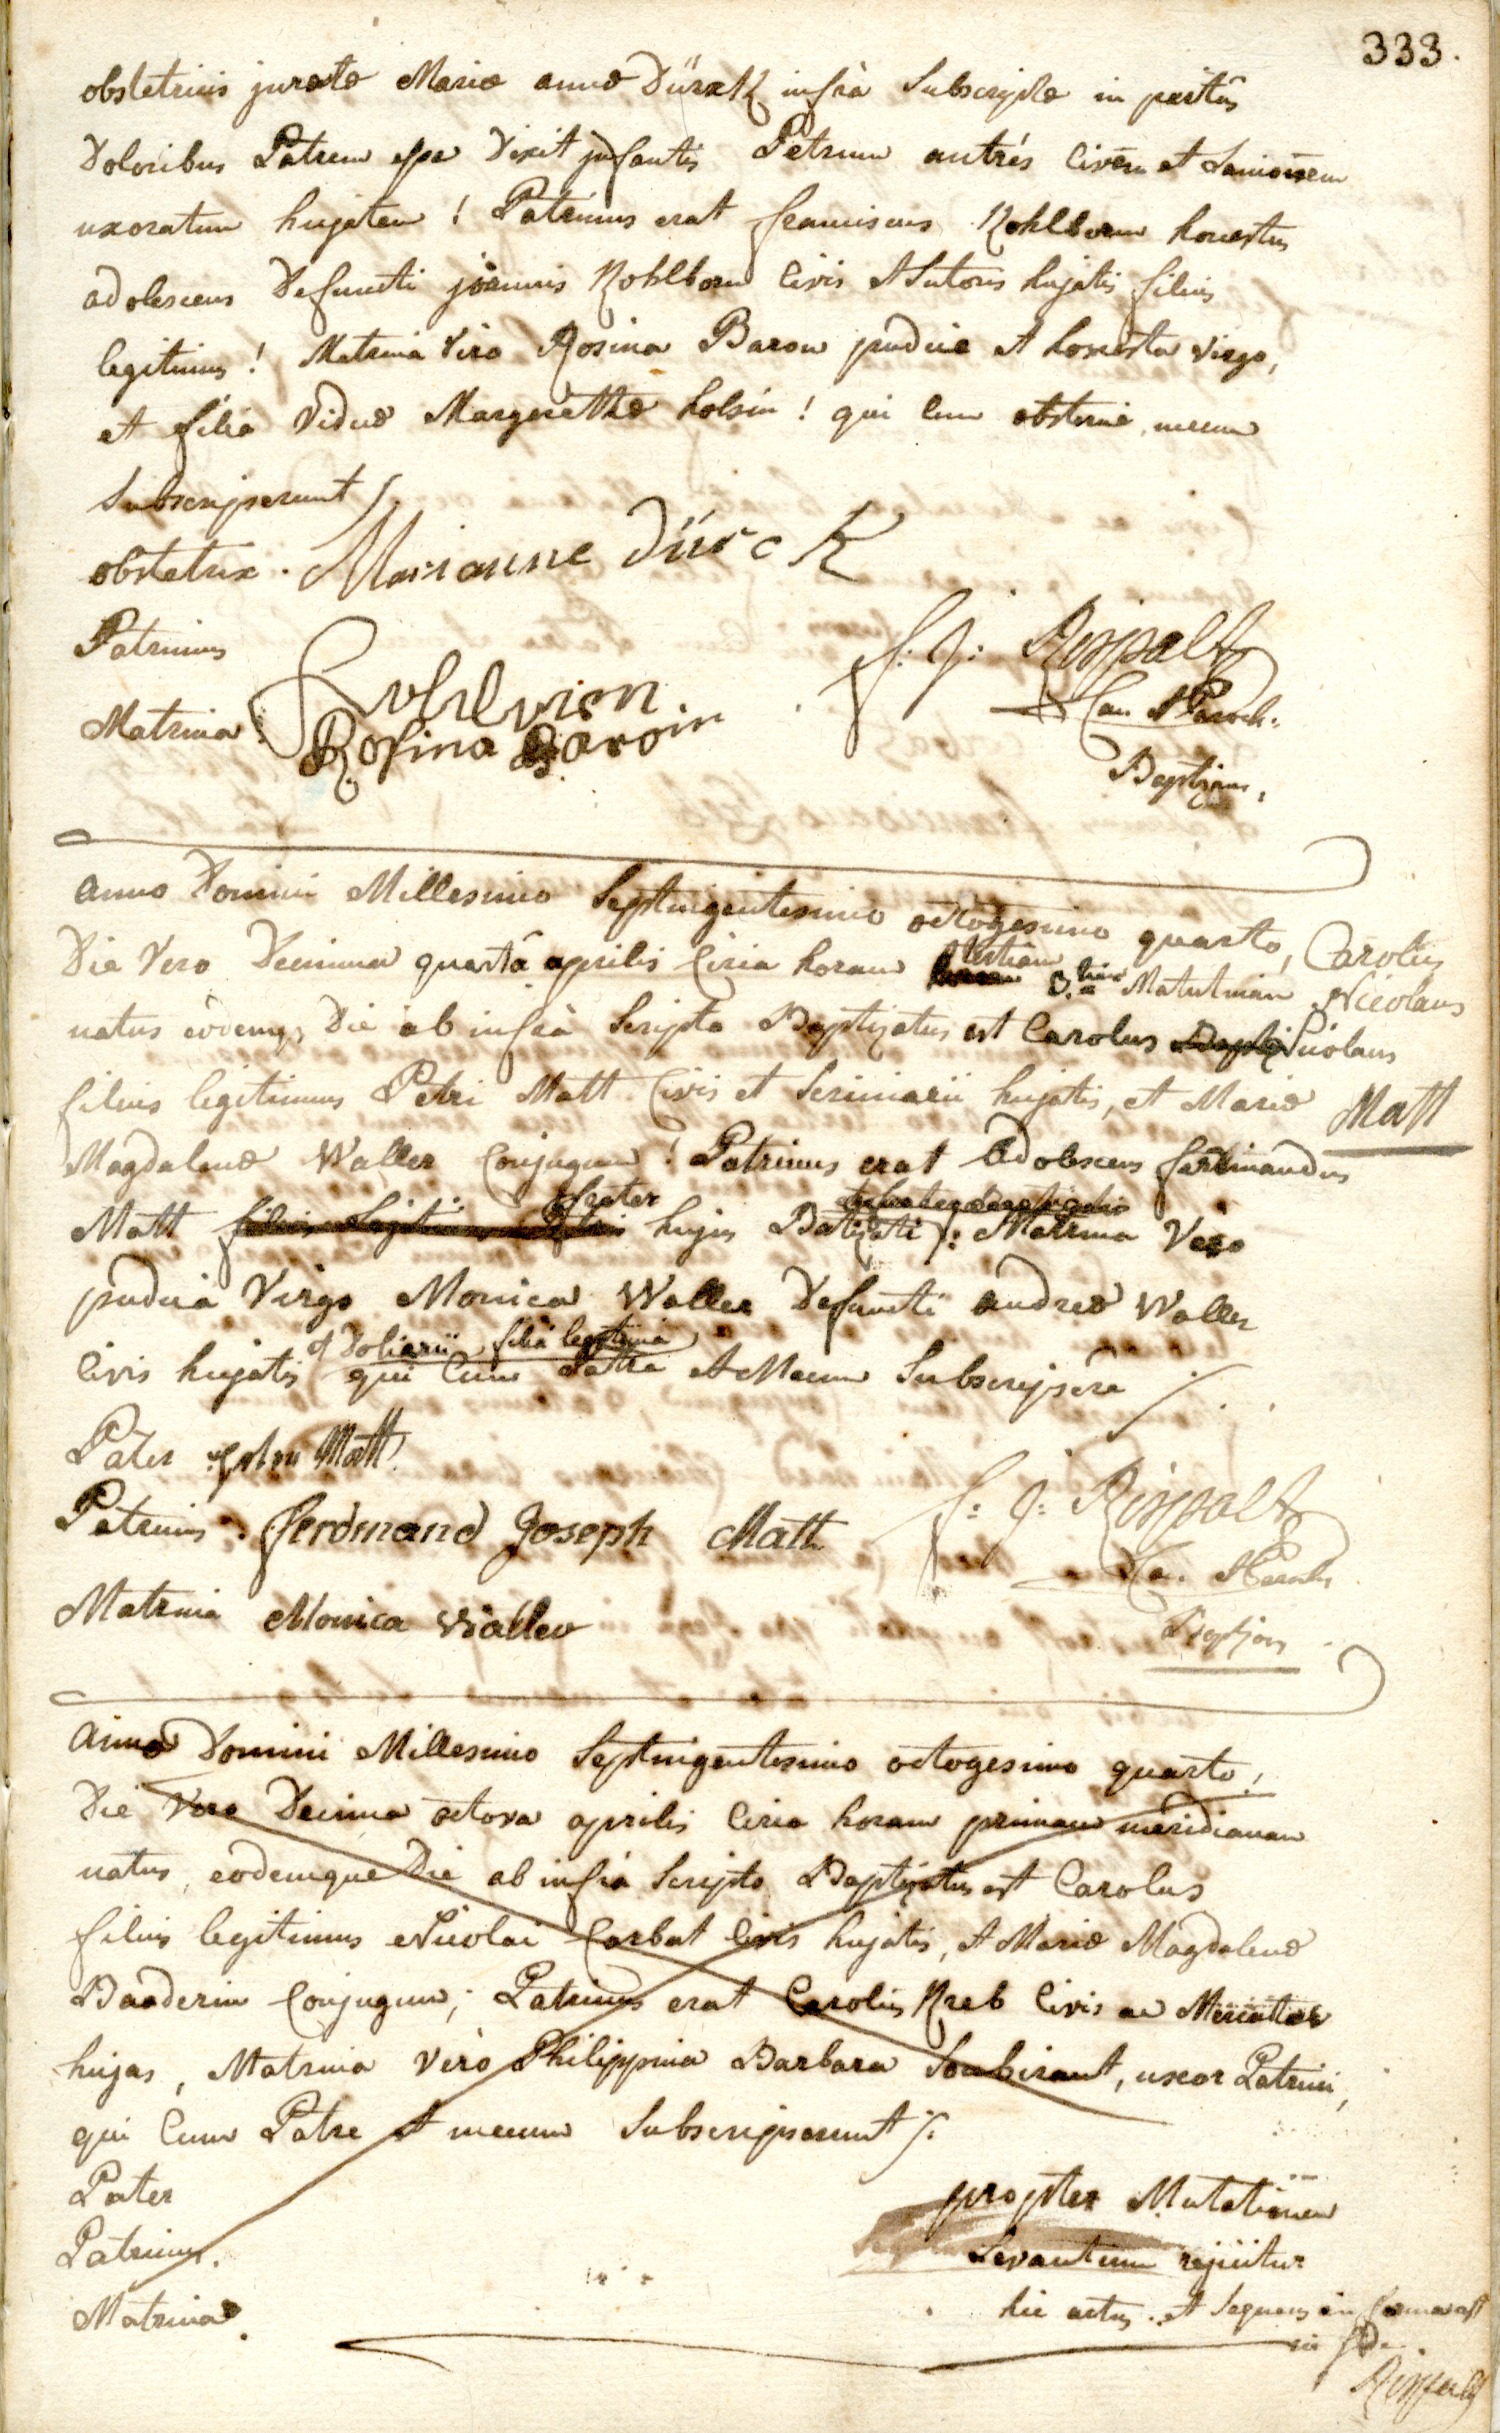 333.
obstetricis juratæ Mariæ annæ Dürck infrà Subscriptæ in partûs
Doloribus Patrem esse Dixit jnfantis Petrum autrés Civem et Lanionem
uxoratum hujatem! Patrinus erat franciscus Kohlborn honestus
adolescens Defuncti joannis Kohlborn Civis et Sutoris hujatis filius
legitimus! Matrina Verò Rosina Baron pudica et honesta virgo,
et filia Viduæ Margarethæ holsin! qui Cum obstetrice mecum
Subscripserunt /.
obstetrix. Marianne Dürck
Patrinus Kohlborn
f. J: Rispalt
Matrina: Rosina Baroin
Can. et Paroch.
Baptizans,
anno Domini Millesimo Septingentesimo octogesimo quarto, Carolus
Die Vero Decima quartâ aprilis Circa horam tertiam 3.tiam Matutinam Nicolaus
natus eôdemq; Die ab infrà Scripto Baptizatus est Carolus Nicolaus
filius legitimus Petri Matt Civis et Scriniarii hujatis, et Mariæ Matt
Magdalenæ Waller Conjugum! Patrinus erat Adolescens ferdinandus
frater
Matt filius legitimus Petri hujus Batizati /: Matrina Vero
pudica Virgo Monica Waller Defuncti andreæ Waller
et Doliarii filia legitima
Civis hujatis qui Cum Patre et Mecum Subscripsere /.
Pater Petrus Matt
Patrinus. ferdinand Joseph Matt
f: J: Rispalt
Can. et Parochus
Matrina Monica Waller
Baptizans
anno Domini Millesimo Septingentesimo octogesimo quarto!
Die Vero Decima octova aprilis Circa horam primam meridianam
natus, eodemque Die ab infrà Scripto Baptizatus est Carolus
filius legitimus Nicolai Carbat Civis hujatis, et Mariæ Magdalenæ
Baaderin Conjugum; Patrinus erat Carolus Kreb Civis ac Mercator
hujas, Matrina Verò Philippina Barbara Soubirant, uxor Patrini,
qui Cum Patre et mecum Subscripserunt /:
Pater
propter Mutationem
Patrinus.
Levantium rejicitur
Matrina.
hic actus. et Sequens in forma est
in fide.
Rispalt